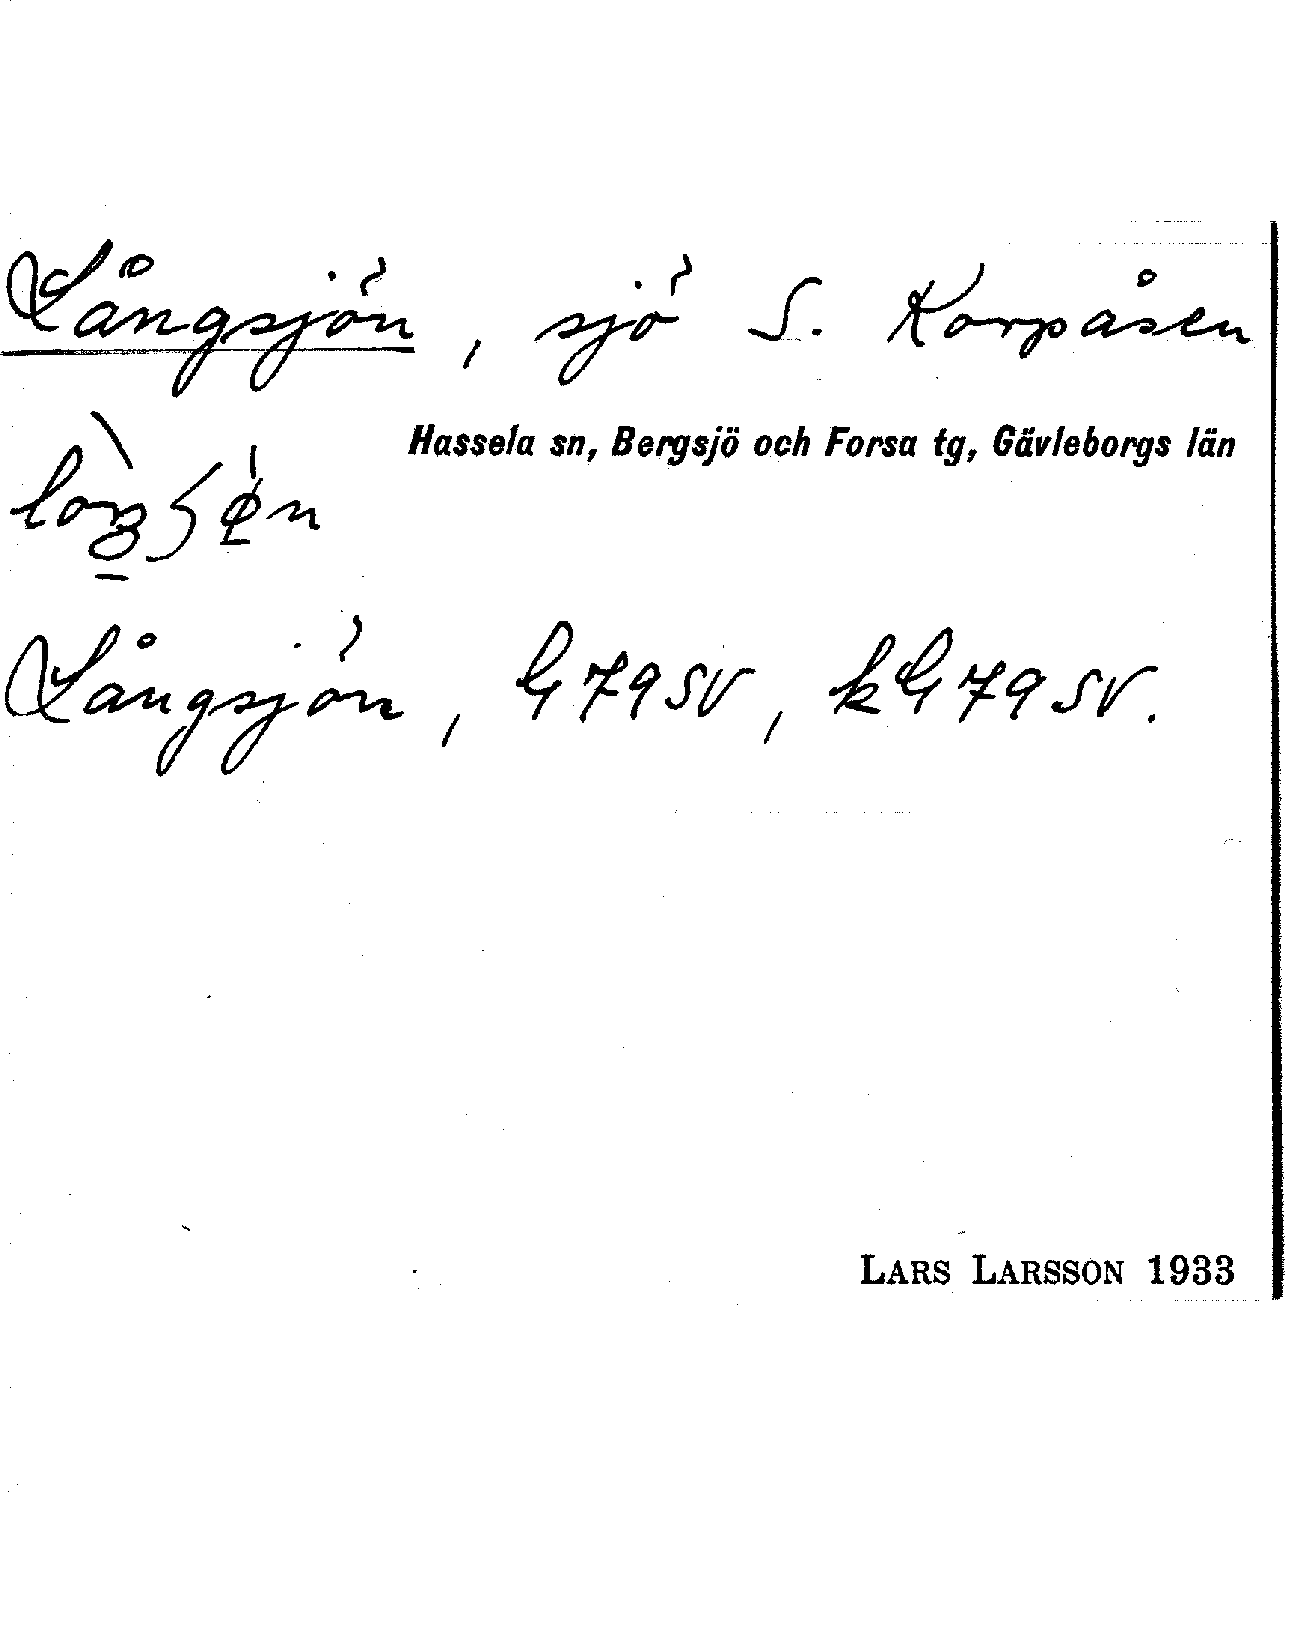 Långsjön, sjö S. Korpåsen
Hassela sn, Bergsjö och Forsa tg, Gävleborgs län
Långsjön, G79SV, kG79SV.
LARS LARSSON 1933